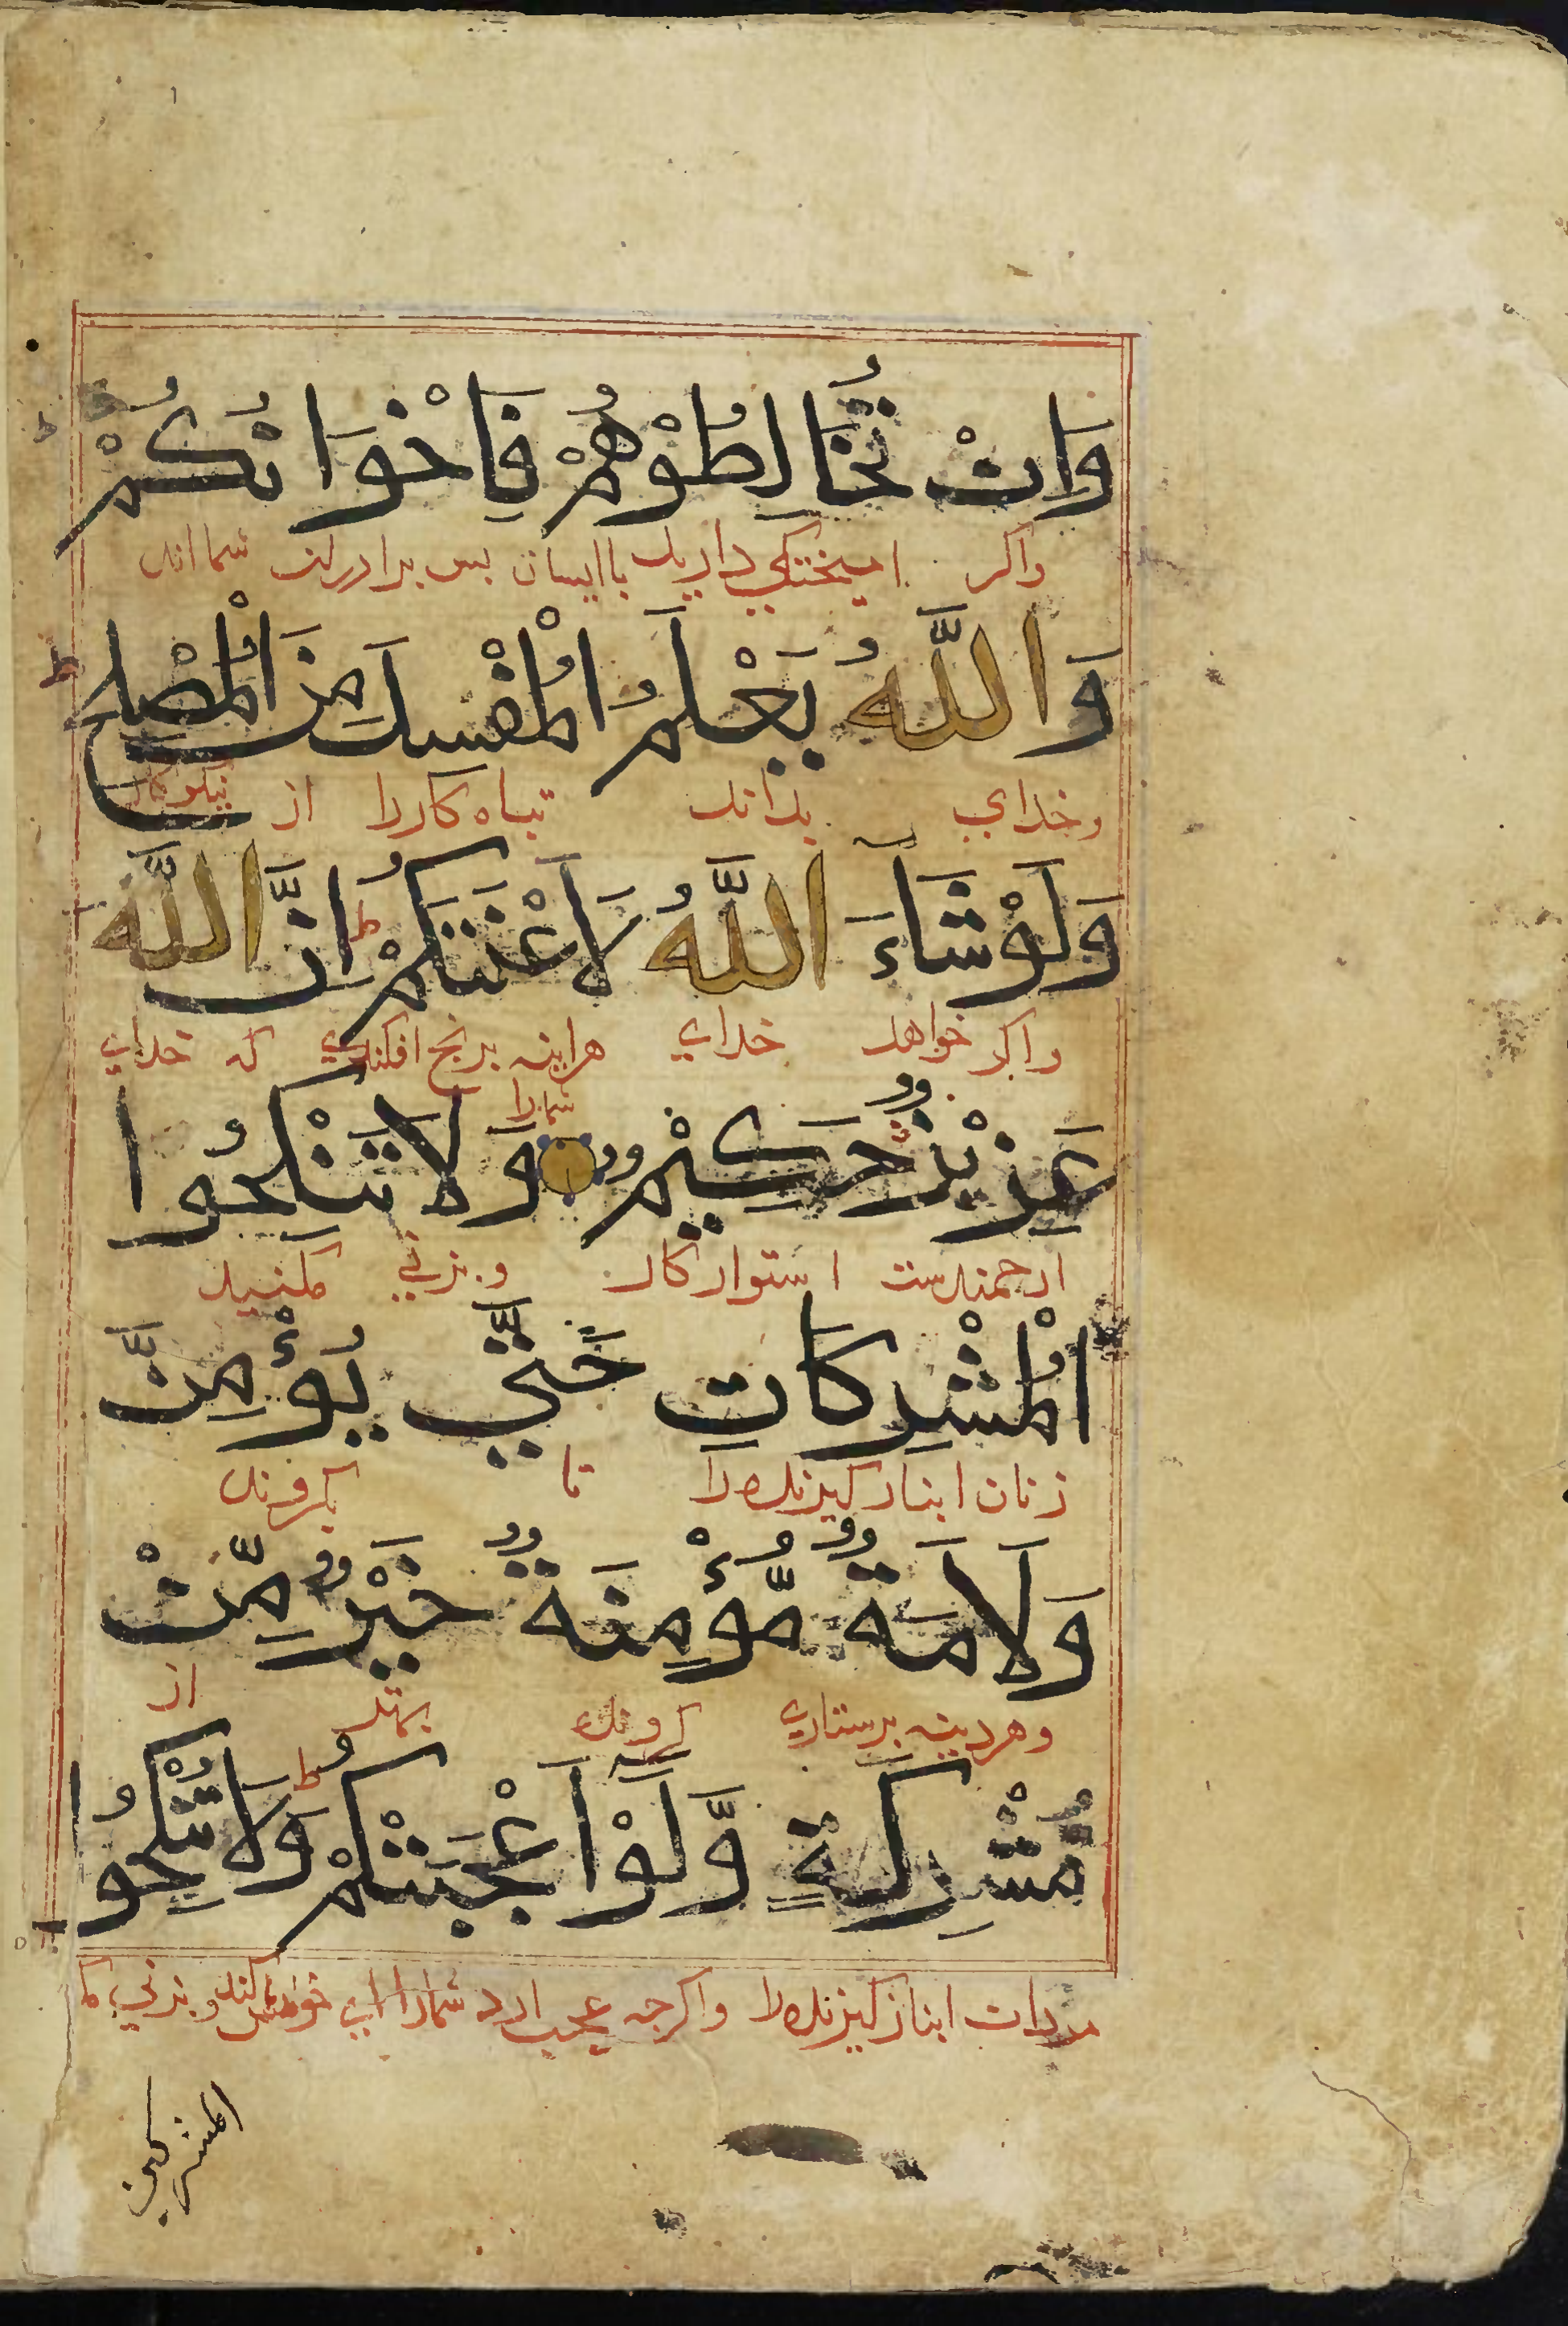 وَاِنْ تُخَالِطُوْهُمْ فَاِخْوَانُكُمْ
واكر اميختكي داريد باايشان بس برادران شمااند
وَاللَّهُ يَعْلَمُ الْمُفْسِدَ مِنَ الْمُصْلِحِ
وخداي بداند تباه كاررا از نيكوكار
وَلَوْ شَاءَ اللَّهُ لَاَعْنَتَكُمْ ط اِنَّ اللَّهَ
واكر خواهد خداي هراينه برنج افكندي كه خداي
شمارا
عَزِيْزٌ حَكِيْمٌ وَلَا تَنْكِحُوا
ارجمندست استواركار و بزني مكنيد
الْمُشْرِكَاتِ حَتَّي يُؤْمِنَّ
زنان انبازكيرنده را تا بكروند
وَلَاَمَةٌ مُّؤْمِنَةٌ خَيْرٌ مِّنْ
وهراينه برستاري كرونده بهتر از
مُشْرِكَةٍ وَّلَوْ اَعْجَبَتْكُمْ ط وَلَا تُنْكِحُوا
انبازكيرنده را واكرجه عجب ارد شمارا و بزني
المشركين